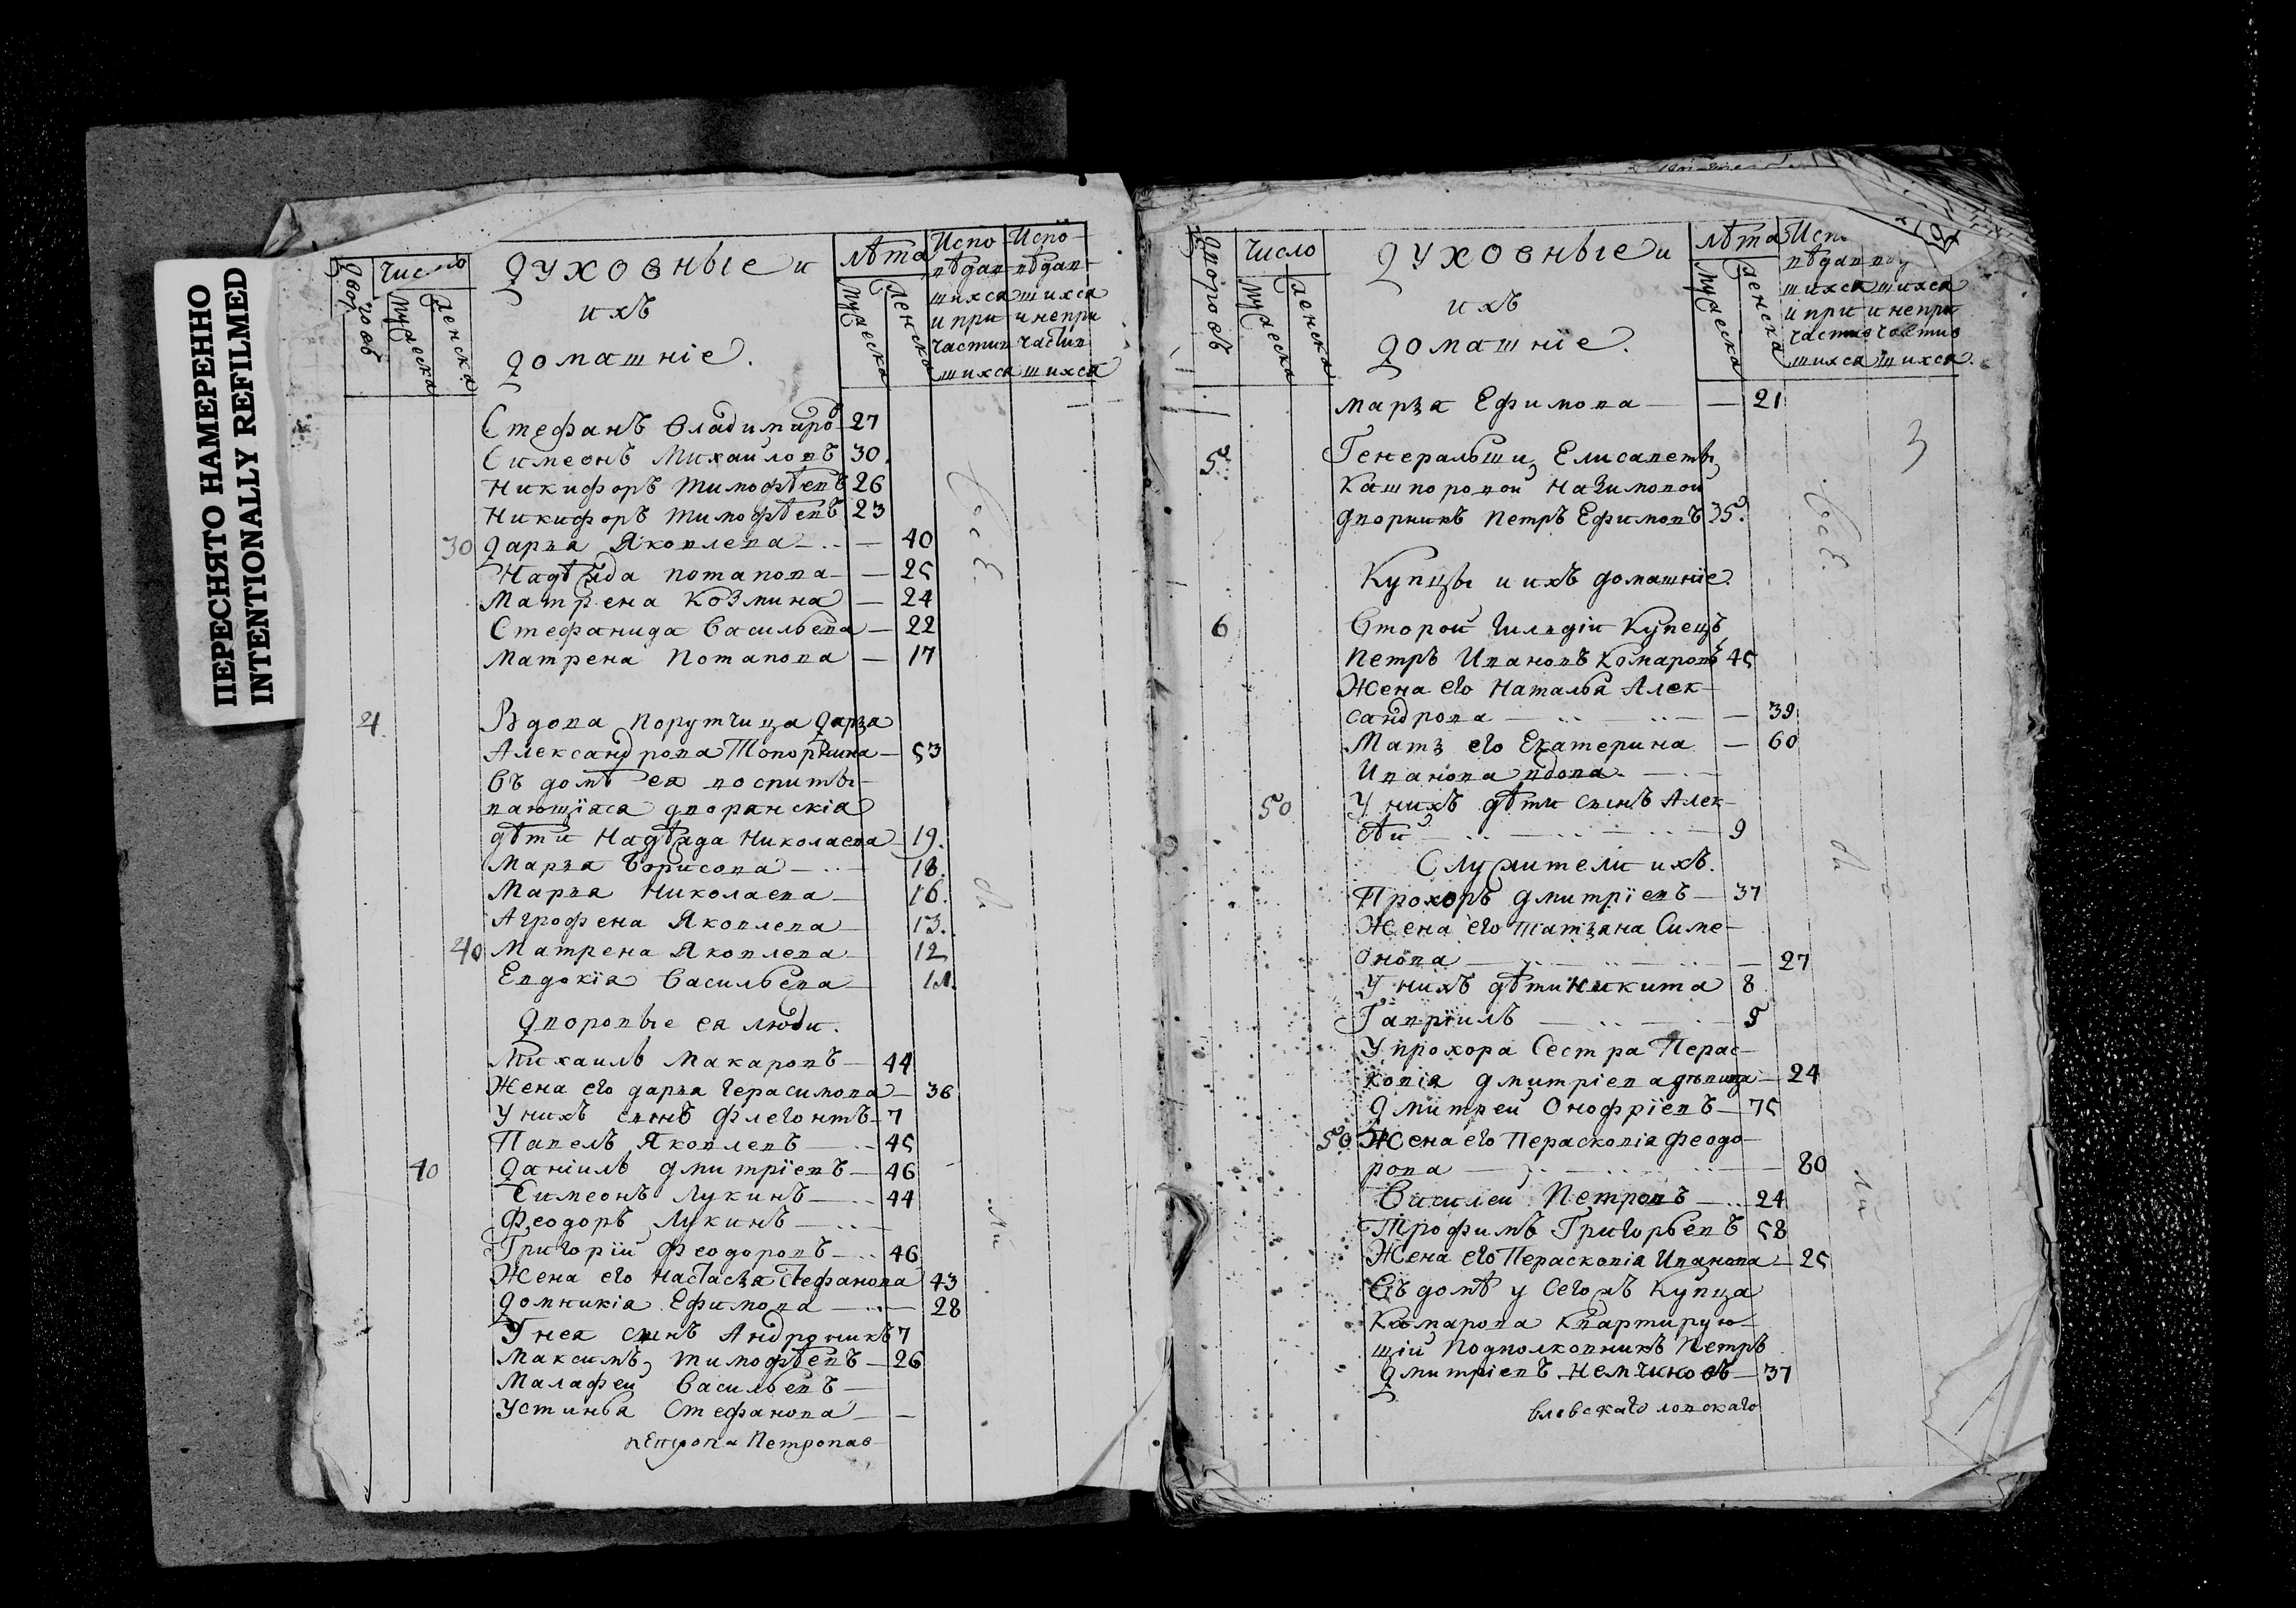 ПЕРЕСНЯТО НАМЕРЕННО
INTENTIONALLY REFILMED
Дворовъ
Число
Мужеска
Женска
Духовные и
ихъ
домашніе.
Лѣта
Мужеска
Женско
Испо- Испо-
вѣдав- вѣдав-
шихся шихся
и при и непри
частив частив
шихся шихся
Стефанъ Владимиро 27
Симеонъ Михайловъ 30.
Никифоръ Тимофѣевъ 26
Никифоръ Тимофѣевъ 23
30 Дарья Яковлева — 40
Надѣжда Потапова — 25
Матрена Козмина — 24
Стефанида Васильева — 22
Матрена Потапова — 17
4. Вдова Порутчица Дарья
Александрова Топорнина — 53
Въ домѣ ея воспиты-
вающіяся дворянскія
дѣти Надѣжда Николаева 19.
Марья Борисова — 18.
Марья Николаева — 16.
Агрофена Яковлева — 13.
40 Матрена Яковлева — 12
Евдокія Васильева — 11.
Дворовые ея люди.
Михаилъ Макаровъ — 44
Жена его Дарья Герасимова — 36
У нихъ сынъ Флегонтъ — 7
Павелъ Яковлевъ — 45
40 Даніилъ Дмитріевъ — 46
Симеонъ Лукинъ — 44
Феодоръ Лукинъ —
Григорій Феодоровъ — 46
Жена его Настасья Стефанова 43
Домникія Ефимова — 28
У нея сынъ Андроникъ 7
Максимъ Тимофѣевъ — 26
Малафей Васильевъ —
Устинья Стефанова —
Петропав-
Дворовъ
Число
Мужеска
Женска
Духовные и
ихъ
домашніе.
Лѣта
Мужеска
Женска
Исп
вѣдав
шихся шихся
и при и непри
частив частив
шихся шихся.
Марья Ефимова — — 21
3
5. Генеральши Елисаветы
Кашпоровой Назимовой
дворникъ Петръ Ефимовъ 35.
Купцы и ихъ домашніе.
6 Второй гильдіи купецъ
Петръ Ивановъ Комаровъ 45
Жена его Наталья Алек-
сандрова — — 39
Мать его Екатерина — 60
Иванова вдова. —
50 У нихъ дѣти сынъ Алек-
сѣй — 9
Служители ихъ.
Прохоръ Дмитріевъ — 37
Жена его Татьяна Симе-
онова — — 27
У нихъ дѣти Никита 8
Гавріилъ — 5
У Прохора сестра Перас-
ковія Дмитріева дѣвица — 24
Дмитрей Онофріевъ — 75
50 Жена его Перасковія Феодо-
рова — 80
Василей Петровъ — 24
Трофимъ Григорьевъ 58
Жена его Перасковія Иванова — 25
Въ домѣ у сегожъ купца
Комарова квартирую-
щій Подполковникъ Петръ
Дмитріевъ Немчиновъ — 37